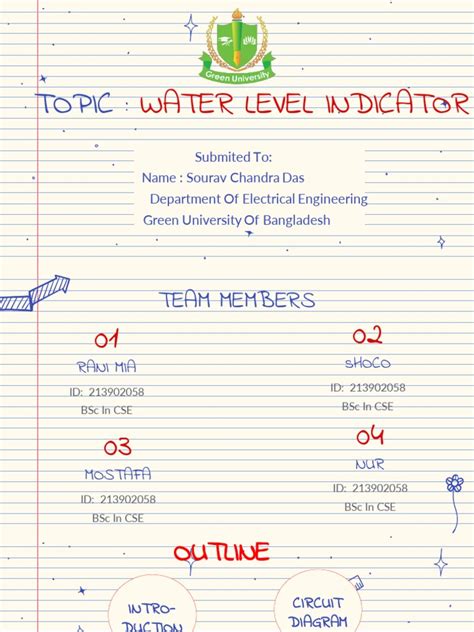 Green University
TOPIC : WATER LEVEL INDICATOR
Submited To:
Name : Sourav Chandra Das
Department Of Electrical Engineering
Green University Of Bangladesh
TEAM MEMBERS
01
RANI MIA
ID: 213902058
BSc In CSE
02
SHOCO
ID: 213902058
BSc In CSE
03
MOSTAFA
ID: 213902058
BSc In CSE
04
NUR
ID: 213902058
BSc In CSE
OUTLINE
INTRO-
DUCTION
CIRCUIT
DIAGRAM